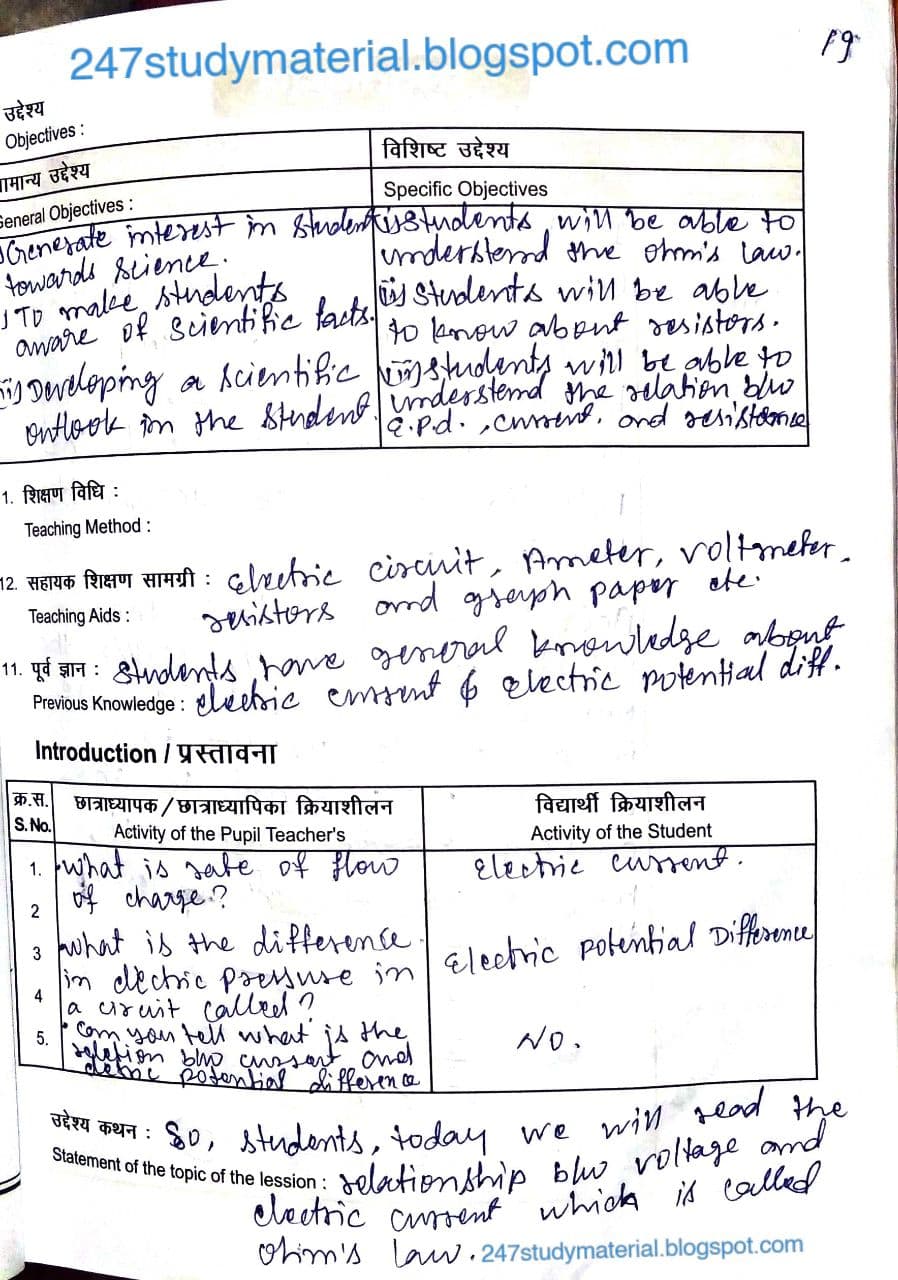 247studymaterial.blogspot.com
19
उद्देश्य
Objectives :
ामान्य उद्देश्य
General Objectives :
) Generate interest in student
towards science.
) To make students
aware of scientific facts.
ii) Developing a scientific
outlook in the student.
विशिष्ट उद्देश्य
Specific Objectives
(i) students will be able to
understand the ohm's law.
(ii) students will be able
to know about resistors.
(iii) students will be able to
understand the relation b/w
E.P.d., current. and resistance
1. शिक्षण विधि :
Teaching Method :
12. सहायक शिक्षण सामग्री : electric circuit, Ameter, voltmeter.
Teaching Aids : resistors and graph paper etc.
11. पूर्व ज्ञान : students have general knowledge about
Previous Knowledge : electric current & electric potential diff.
Introduction / प्रस्तावना
क्र.स.
S.No.
छात्राध्यापक / छात्राध्यापिका क्रियाशीलन
Activity of the Pupil Teacher's
विद्यार्थी क्रियाशीलन
Activity of the Student
1. What is rate of flow
2 of charge?
Electric current.
3 What is the difference
in electric pressure in
4 a circuit called?
Electric potential Difference
5. Can you tell what is the
relation b/w current and
electric potential difference
NO.
उद्देश्य कथन : So, students, today we will read the
Statement of the topic of the lession : relationship b/w voltage and
electric current which is called
Ohm's law. 247studymaterial.blogspot.com